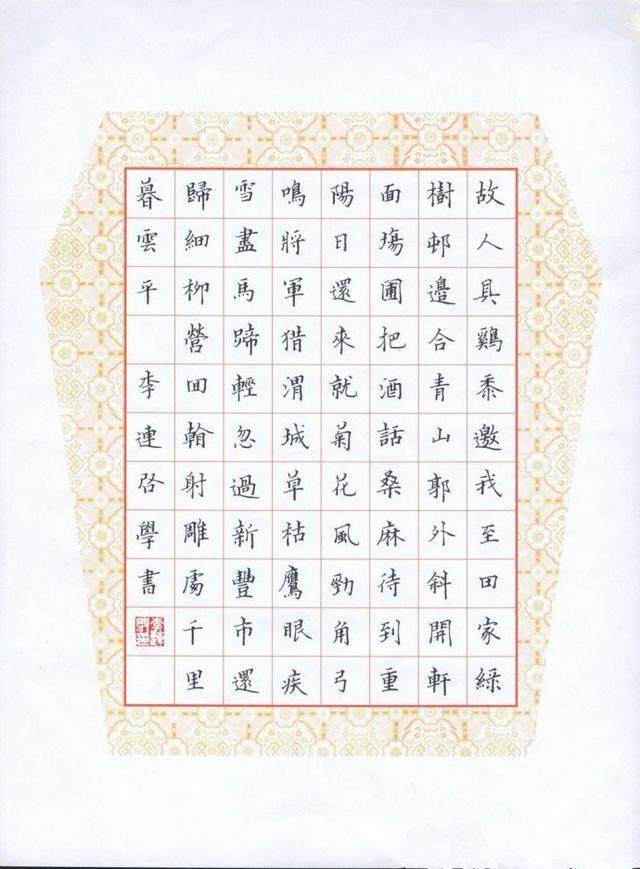 故人具鷄黍邀我至田家綠
樹邨邊合青山郭外斜開軒
面塲圃把酒話桑麻待到重
陽日還來就菊花風勁角弓
鳴將軍猎渭城草枯鷹眼疾
雪盡馬蹄輕忽過新豐市還
歸細柳營回翰射雕處千里
暮雲平 李連启學書